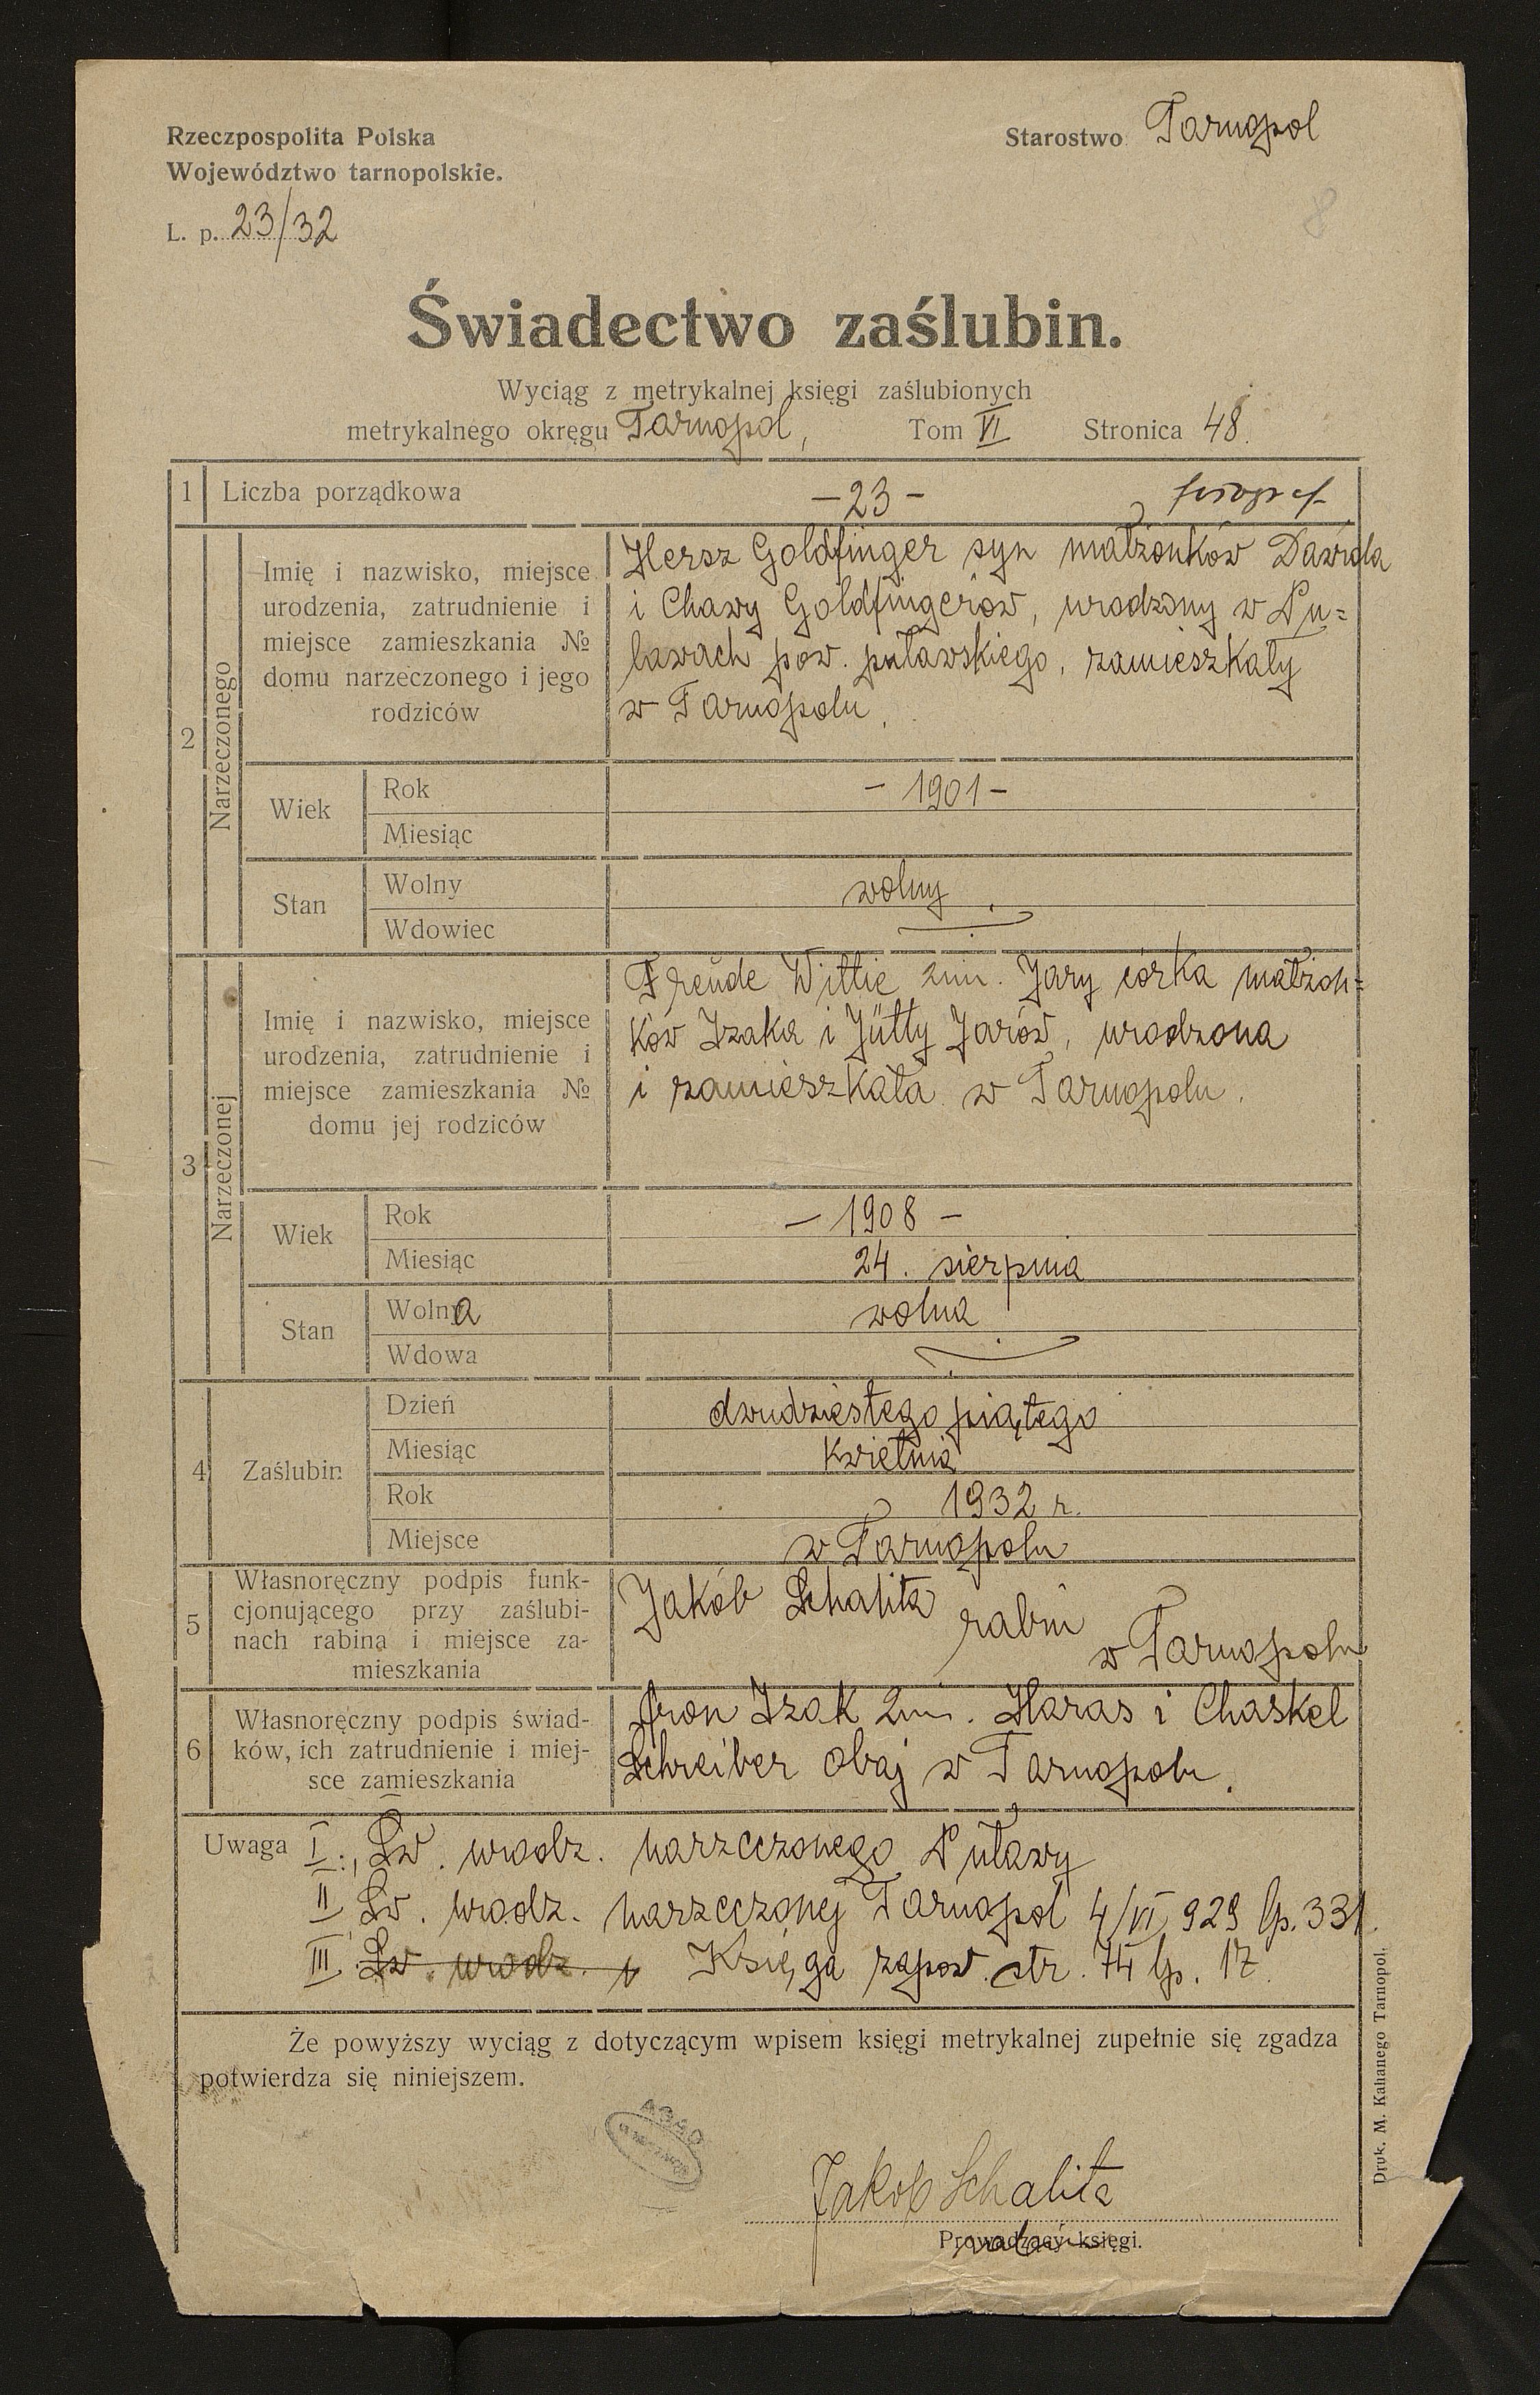 Rzeczpospolita Polska
Starostwo Tarnopol
Województwo tarnopolskie.
L. p. 23/32
8
Świadectwo zaślubin.
Wyciąg z metrykalnej księgi zaślubionych
metrykalnego okręgu Tarnopol, Tom VI Stronica 48.
1 Liczba porządkowa
– 23 –
2 Narzeczonego
Imię i nazwisko, miejsce
urodzenia, zatrudnienie i
miejsce zamieszkania №
domu narzeczonego i jego
rodziców
Hersz Goldfinger syn małżonków Dawida
i Chawy Goldfingerów, urodzony w Pu=
ławach pow. puławskiego, zamieszkały
w Tarnopolu.
Wiek
Rok – 1901 –
Miesiąc
Stan
Wolny wolny
Wdowiec
3 Narzeczonej
Imię i nazwisko, miejsce
urodzenia, zatrudnienie i
miejsce zamieszkania №
domu jej rodziców
Freude Wittie 2im. Jary córka małżon=
ków Izaka i Jütty Jarów, urodzona
i zamieszkała w Tarnopolu.
Wiek
Rok – 1908 –
Miesiąc 24. sierpnia
Stan
Wolna wolna
Wdowa
4 Zaślubin
Dzień dwudziestego piątego
Miesiąc kwietnia
Rok 1932 r.
Miejsce w Tarnopolu
5 Własnoręczny podpis funk-
cjonującego przy zaślubi-
nach rabina i miejsce za-
mieszkania
Jakób Schalita rabin w Tarnopolu
6 Własnoręczny podpis świad-
ków, ich zatrudnienie i miej-
sce zamieszkania
Aron Izak 2im. Haras i Chaskel
Schreiber obaj w Tarnopolu.
Uwaga I., Św. urodz. narzeczonego Puławy
II Św. urodz. narzeczonej Tarnopol 4/VI 929 lp. 331.
III. Św. urodz. Księga zapow. str. 74 lp. 17.
Że powyższy wyciąg z dotyczącym wpisem księgi metrykalnej zupełnie się zgadza
potwierdza się niniejszem.
Jakob Schalita
Prowadzący księgi.
rabin
Druk. M. Kahanego Tarnopol.